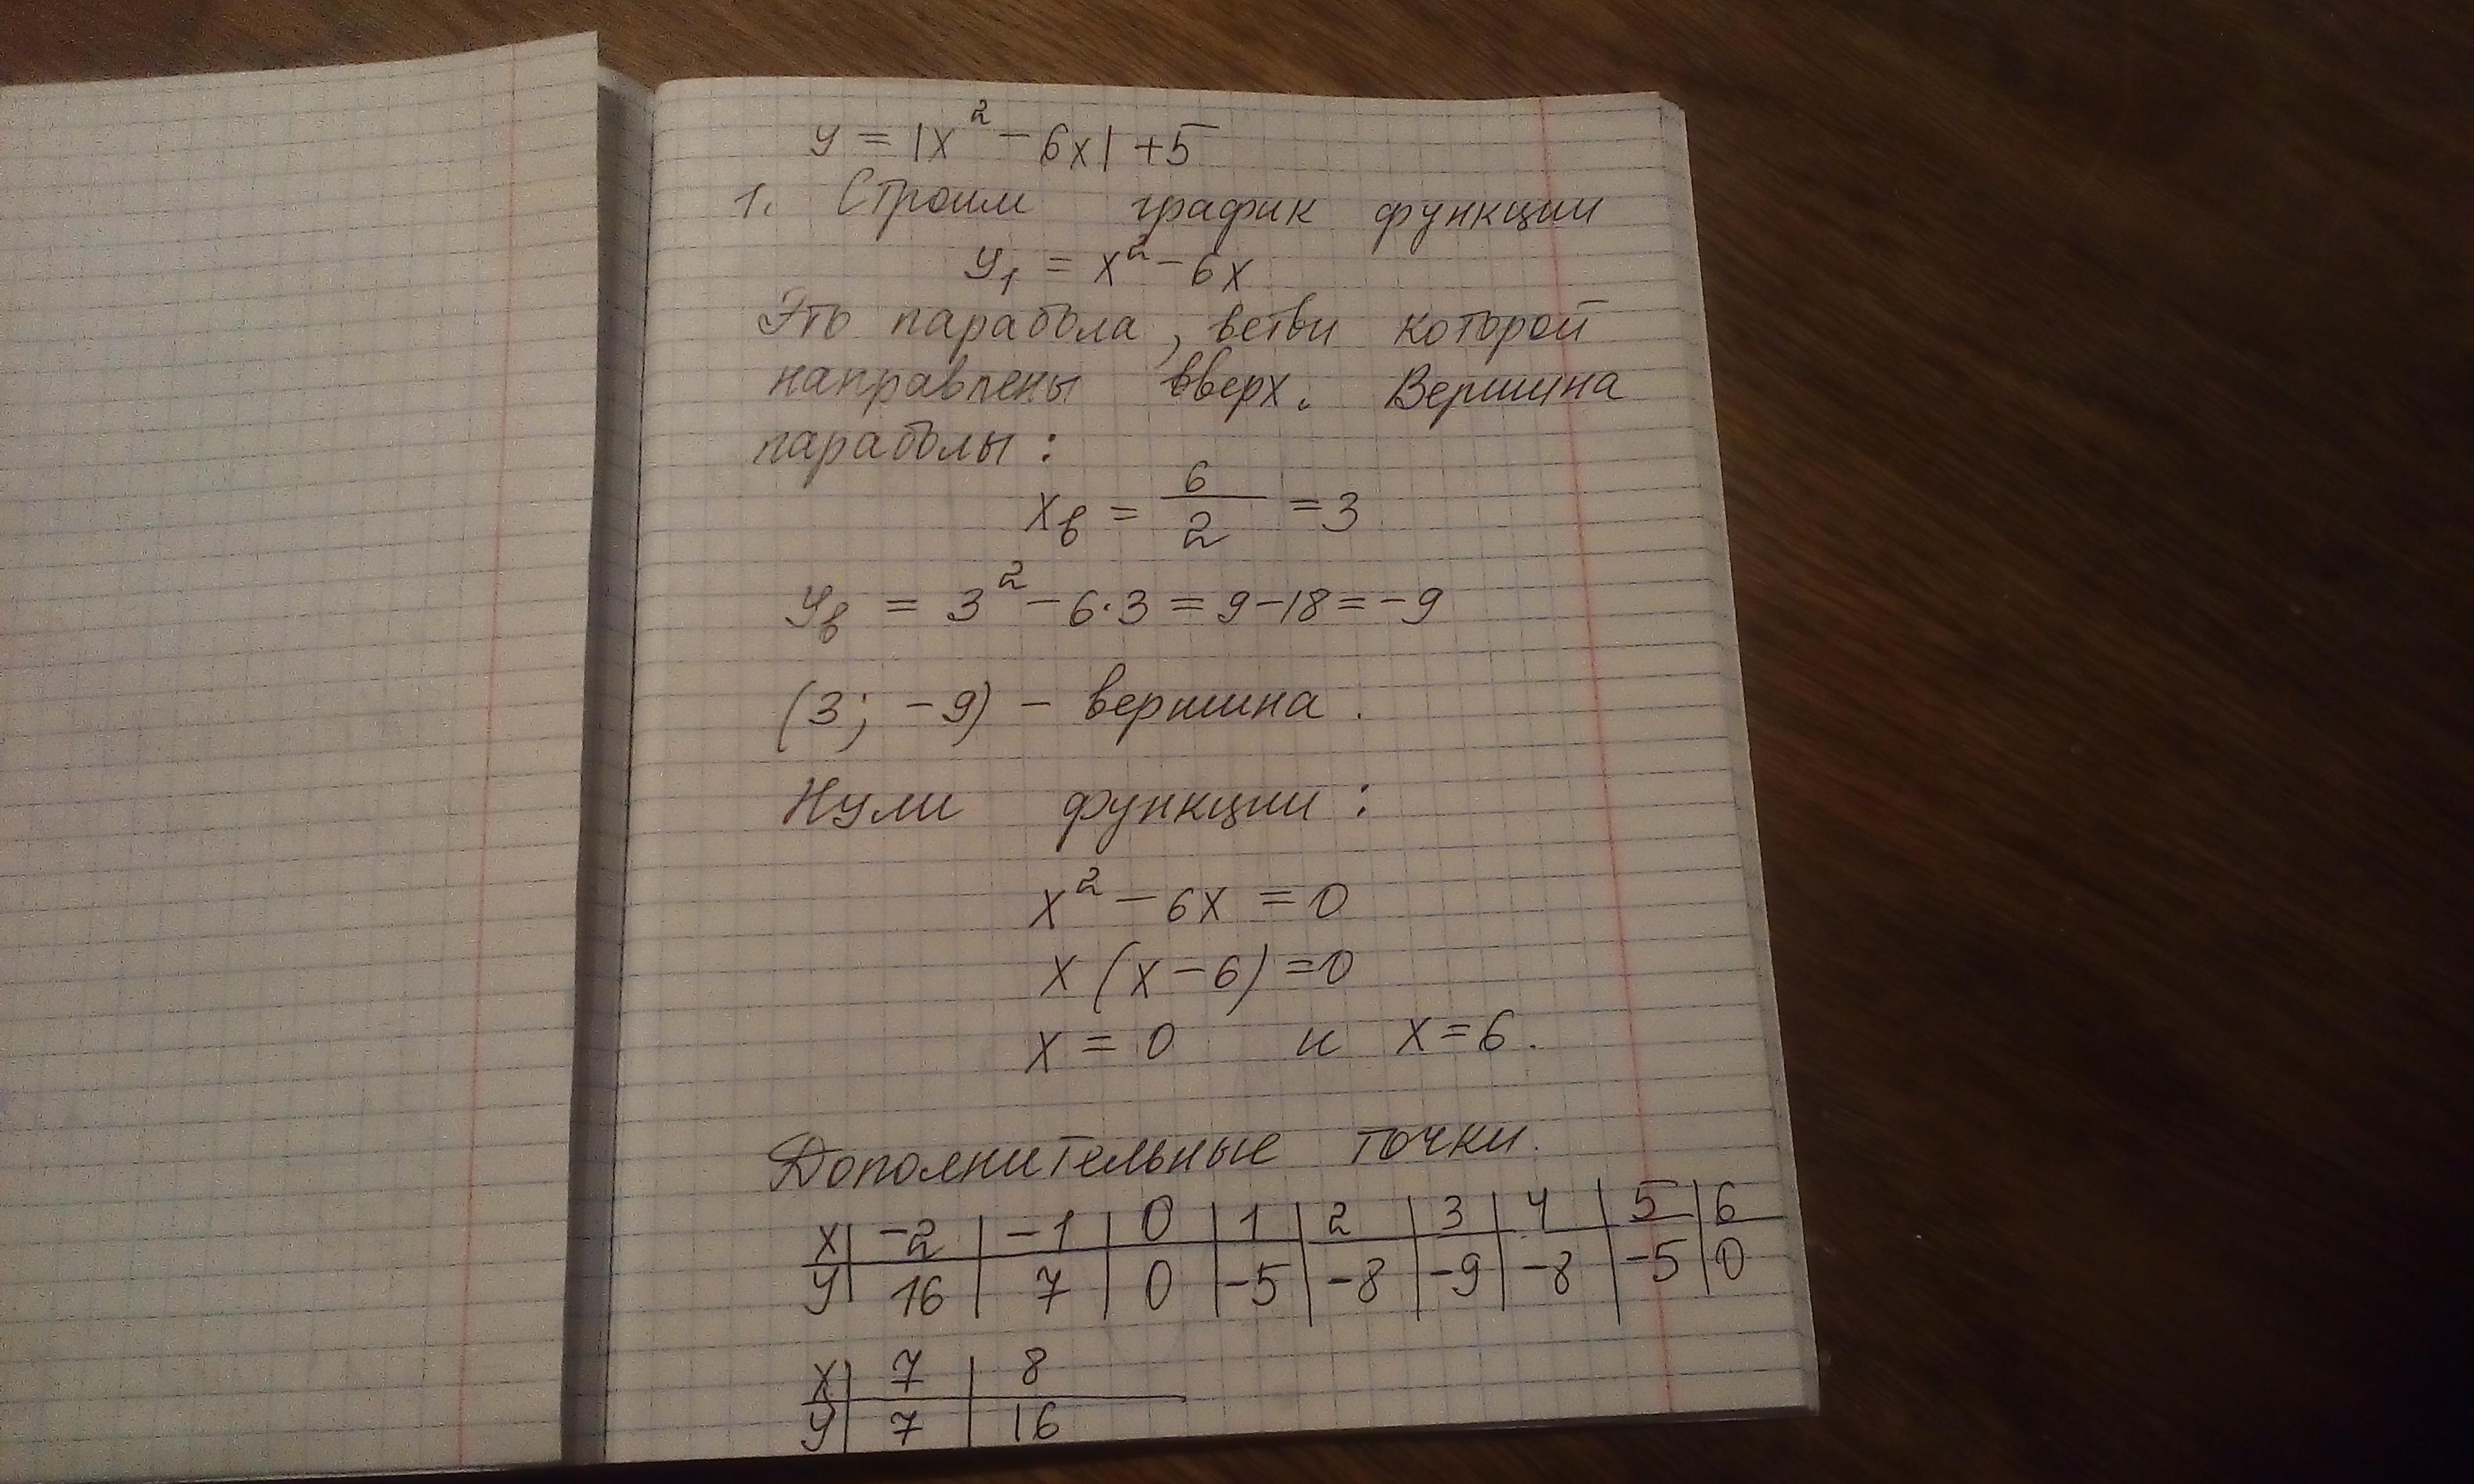 y = |x² - 6x| + 5
1. Строим график функции
y₁ = x² - 6x
Это парабола, ветви которой
направлены вверх. Вершина
параболы:
xв = 6/2 = 3
yв = 3² - 6·3 = 9 - 18 = -9
(3; -9) - вершина.
Нули функции:
x² - 6x = 0
x(x - 6) = 0
x = 0 и x = 6.
Дополнительные точки.
x | -2 | -1 | 0 | 1 | 2 | 3 | 4 | 5 | 6
y | 16 | 7 | 0 | -5 | -8 | -9 | -8 | -5 | 0
x | 7 | 8
y | 7 | 16